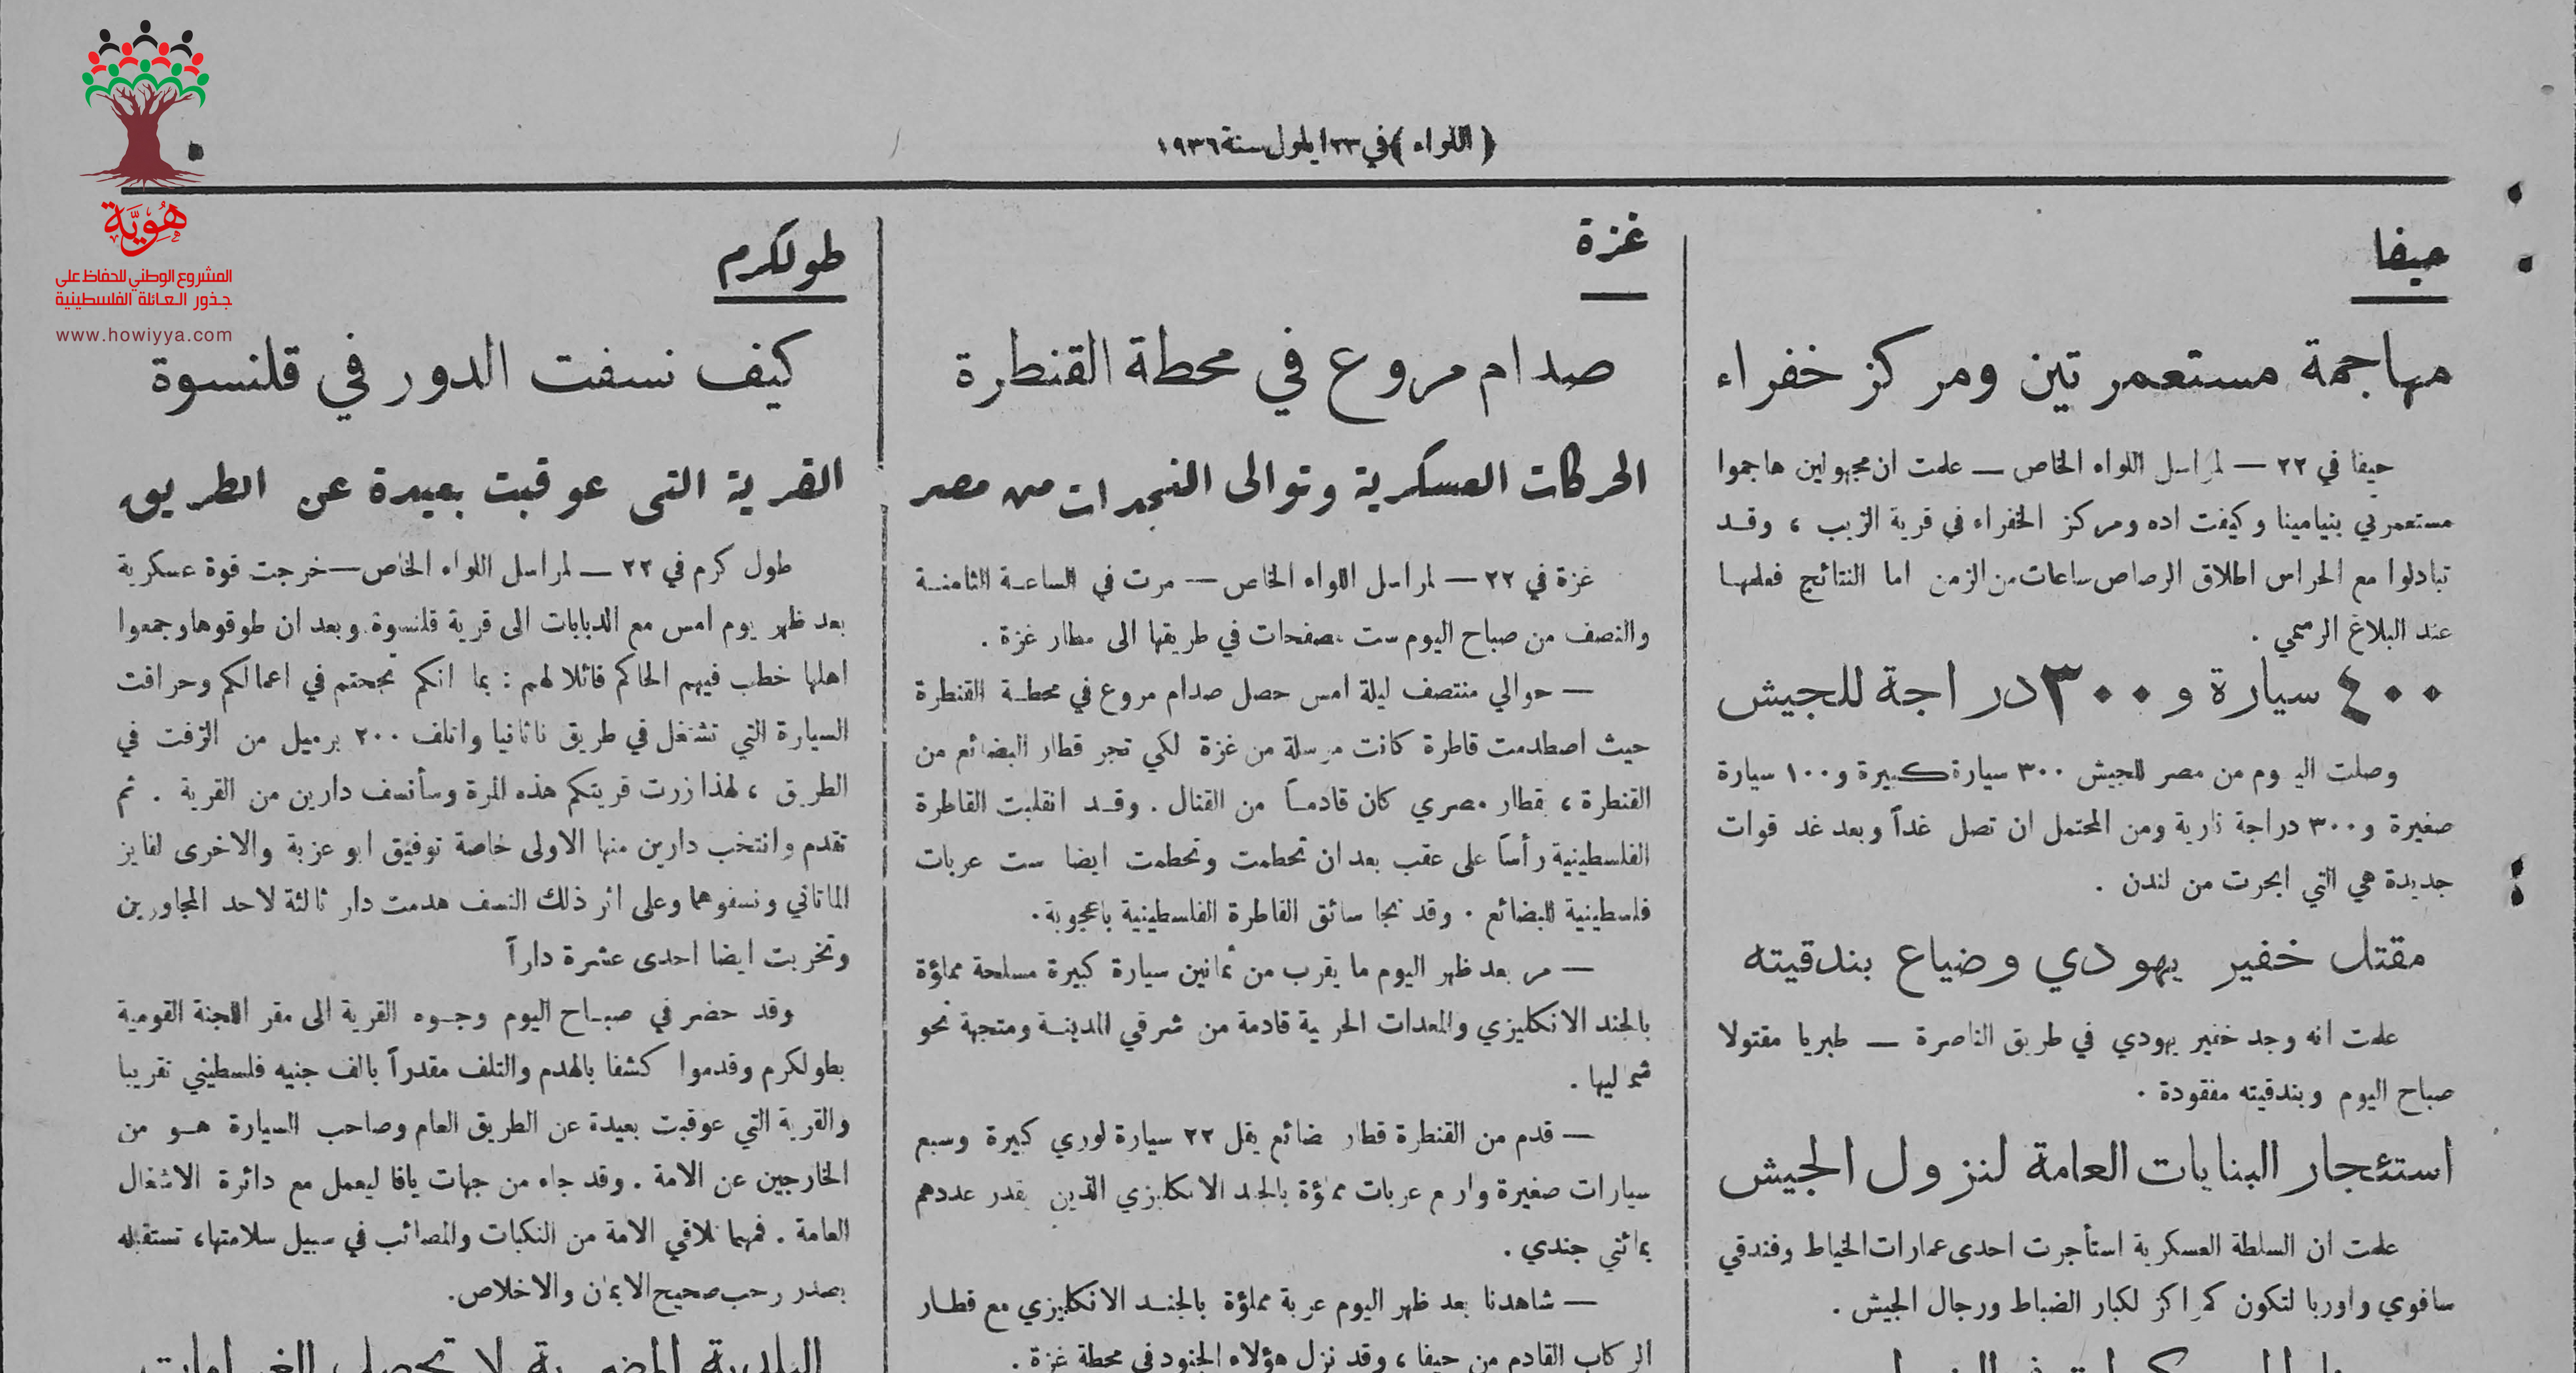 ﴿ اللواء ﴾ في ٢٣ ايلول سنة ١٩٣٦
حيفا
مهاجمة مستعمرتين ومركز خفراء
حيفا في ٢٢ — لمراسل اللواء الخاص — علمت ان مجهولين هاجموا
مستعمرتي بنيامينا وكيفت اده ومركز الخفراء في قرية الزيب ، وقد
تبادلوا مع الحراس اطلاق الرصاص ساعات من الزمن اما النتائج فعلمها
عند البلاغ الرسمي .
٤٠٠ سيارة و ٣٠٠ دراجة للجيش
وصلت اليوم من مصر للجيش ٣٠٠ سيارة كبيرة و ١٠٠ سيارة
صغيرة و ٣٠٠ دراجة نارية ومن المحتمل ان تصل غداً وبعد غد قوات
جديدة هي التي ابحرت من لندن .
مقتل خفير يهودي وضياع بندقيته
علمت انه وجد خفير يهودي في طريق الناصرة — طبريا مقتولا
صباح اليوم وبندقيته مفقودة .
استئجار البنايات العامة لنزول الجيش
علمت ان السلطة العسكرية استأجرت احدى عمارات الخياط وفندقي
سافوي واوربا لتكون كمراكز لكبار الضباط ورجال الجيش .
غزة
صدام مروع في محطة القنطرة
الحركات العسكرية وتوالى النجدات من مصر
غزة في ٢٢ — لمراسل اللواء الخاص — مرت في الساعة الثامنة
والنصف من صباح اليوم ست مصفحات في طريقها الى مطار غزة .
— حوالي منتصف ليلة امس حصل صدام مروع في محطة القنطرة
حيث اصطدمت قاطرة كانت مرسلة من غزة لكي تجر قطار البضائع من
القنطرة ، بقطار مصري كان قادماً من القنال . وقد انقلبت القاطرة
الفلسطينية رأساً على عقب بعد ان تحطمت وتحطمت ايضا ست عربات
فلسطينية للبضائع . وقد نجا سائق القاطرة الفلسطينية باعجوبة .
— مر بعد ظهر اليوم ما يقرب من ثمانين سيارة كبيرة مسلحة مملؤة
بالجند الانكليزي والمعدات الحربية قادمة من شرقي المدينة ومتجهة نحو
شماليها .
— قدم من القنطرة قطار بضائع يقل ٢٢ سيارة لوري كبيرة وسبع
سيارات صغيرة واربع عربات مملؤة بالجند الانكليزي الذين يقدر عددهم
بمائتي جندي .
— شاهدنا بعد ظهر اليوم عربة مملؤة بالجند الانكليزي مع قطار
الركاب القادم من حيفا ، وقد نزل هؤلاء الجنود في محطة غزة .
طولكرم
كيف نسفت الدور في قلنسوة
القرية التى عوقبت بعيدة عن الطريق
طول كرم في ٢٢ — لمراسل اللواء الخاص — خرجت قوة عسكرية
بعد ظهر يوم امس مع الدبابات الى قرية قلنسوة وبعد ان طوقوها وجمعوا
اهلها خطب فيهم الحاكم قائلا لهم : بما انكم نجحتم في اعمالكم وحرائق
السيارة التي تشتغل في طريق ناتانيا واتلف ٢٠٠ برميل من الزفت في
الطريق ، لهذا زرت قريتكم هذه المرة وسأنسف دارين من القرية . ثم
تقدم وانتخب دارين منها الاولى خاصة توفيق ابو عزبة والاخرى لفايز
الماتاني ونسفوهما وعلى اثر ذلك النسف هدمت دار ثالثة لاحد المجاورين
وتخربت ايضا احدى عشرة داراً
وقد حضر في صباح اليوم وجوه القرية الى مقر اللجنة القومية
بطولكرم وقدموا كشفا بالهدم والتلف مقدراً بالف جنيه فلسطيني تقريبا
والقرية التي عوقبت بعيدة عن الطريق العام وصاحب السيارة هو من
الخارجين عن الامة . وقد جاء من جهات يافا ليعمل مع دائرة الاشغال
العامة . فمهما تلاقي الامة من النكبات والمصائب في سبيل سلامتها، تستقبله
بصدر رحب صحيح الايمان والاخلاص .
هُوِيَّة
المشروع الوطني للحفاظ على
جذور العائلة الفلسطينية
www.howiyya.com